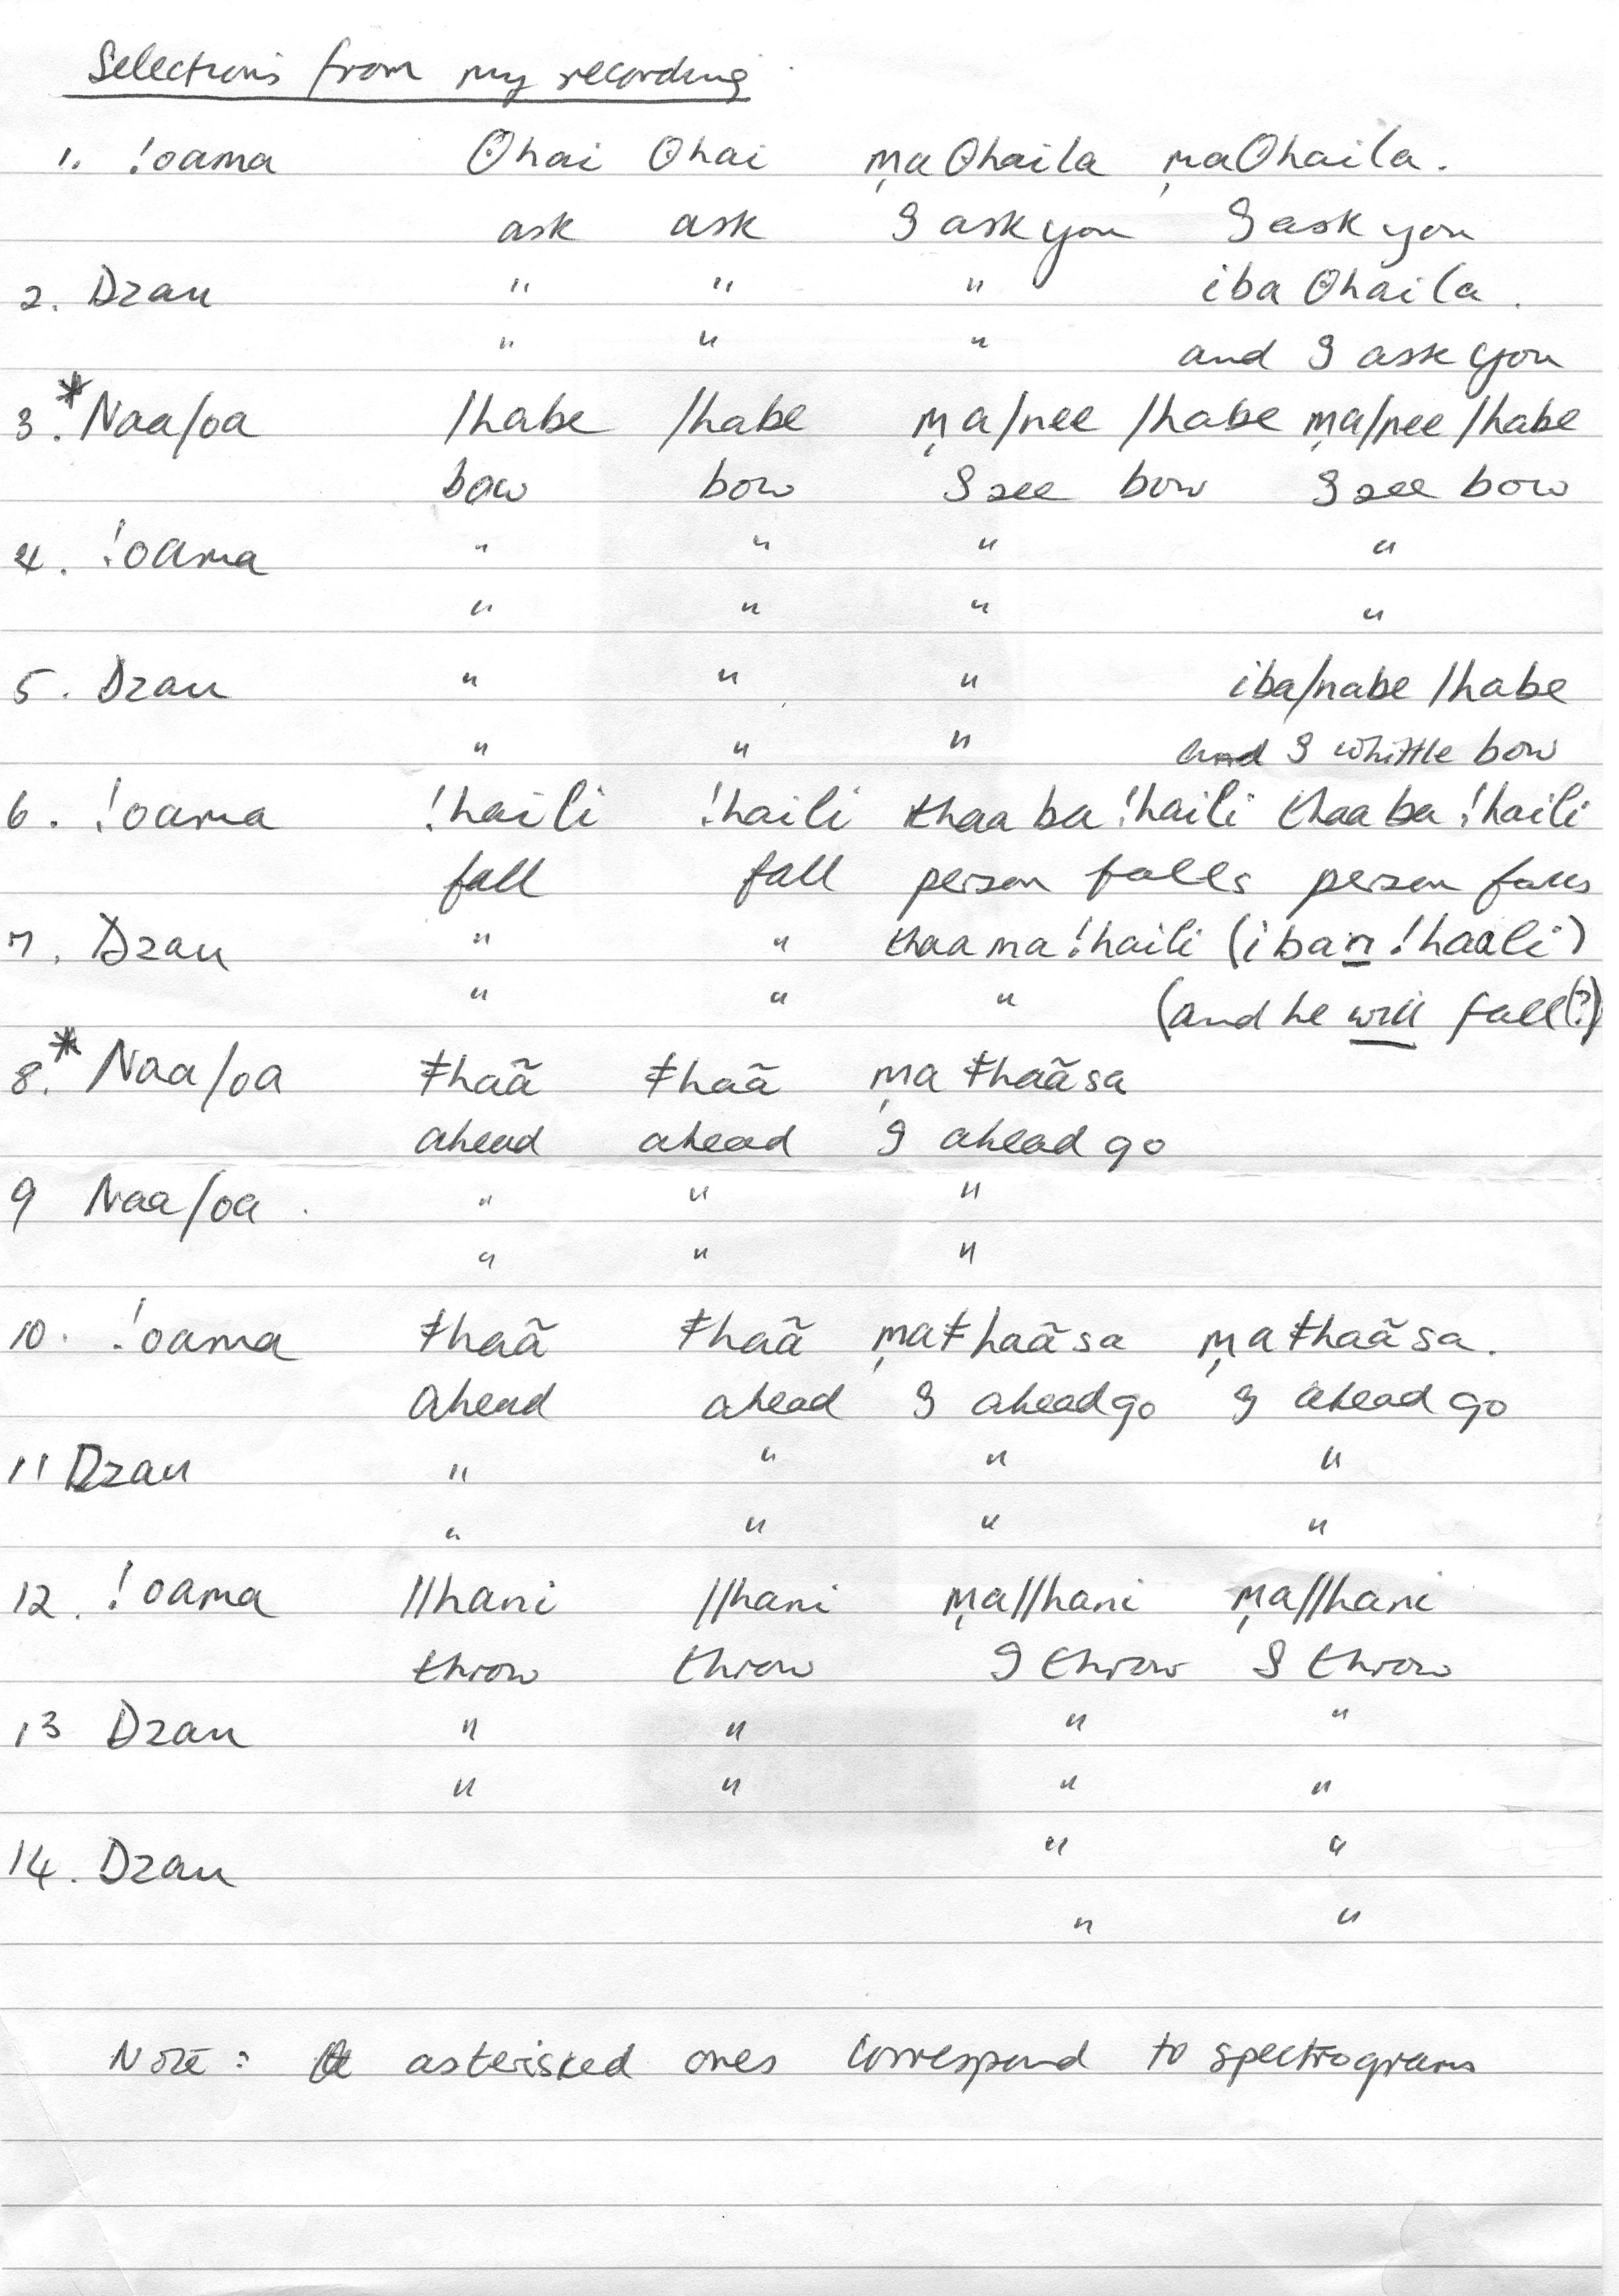 Selections from my recording
1. !oama ʘhai ʘhai m̩aʘhaila m̩aʘhaila.
ask ask I ask you I ask you
2. Dzau " " " iba ʘhaila.
" " " and I ask you
3.* Naa/oa /habe /habe m̩a/nee /habe m̩a/nee /habe
bow bow I see bow I see bow
4. !oama " " " "
" " " "
5. Dzau " " " iba/nabe /habe
" " " and I whittle bow
6. !oama !haili !haili thaa ba !haili thaa ba !haili
fall fall person falls person falls
7. Dzau " " thaa ma !haili (iban !haali)
" " " (and he will fall(?)
8.* Naa/oa ǂhaã ǂhaã m̩a ǂhaãsa
ahead ahead I ahead go
9 Naa/oa. " " "
" " "
10. !oama ǂhaã ǂhaã m̩aǂhaãsa m̩aǂhaãsa.
ahead ahead I ahead go I ahead go
11 Dzau " " " "
" " " "
12. !oama //hani //hani m̩a//hani m̩a//hani
throw throw I throw I throw
13 Dzau " " " "
" " " "
14. Dzau " "
" "
Note: asterisked ones correspond to spectrograms